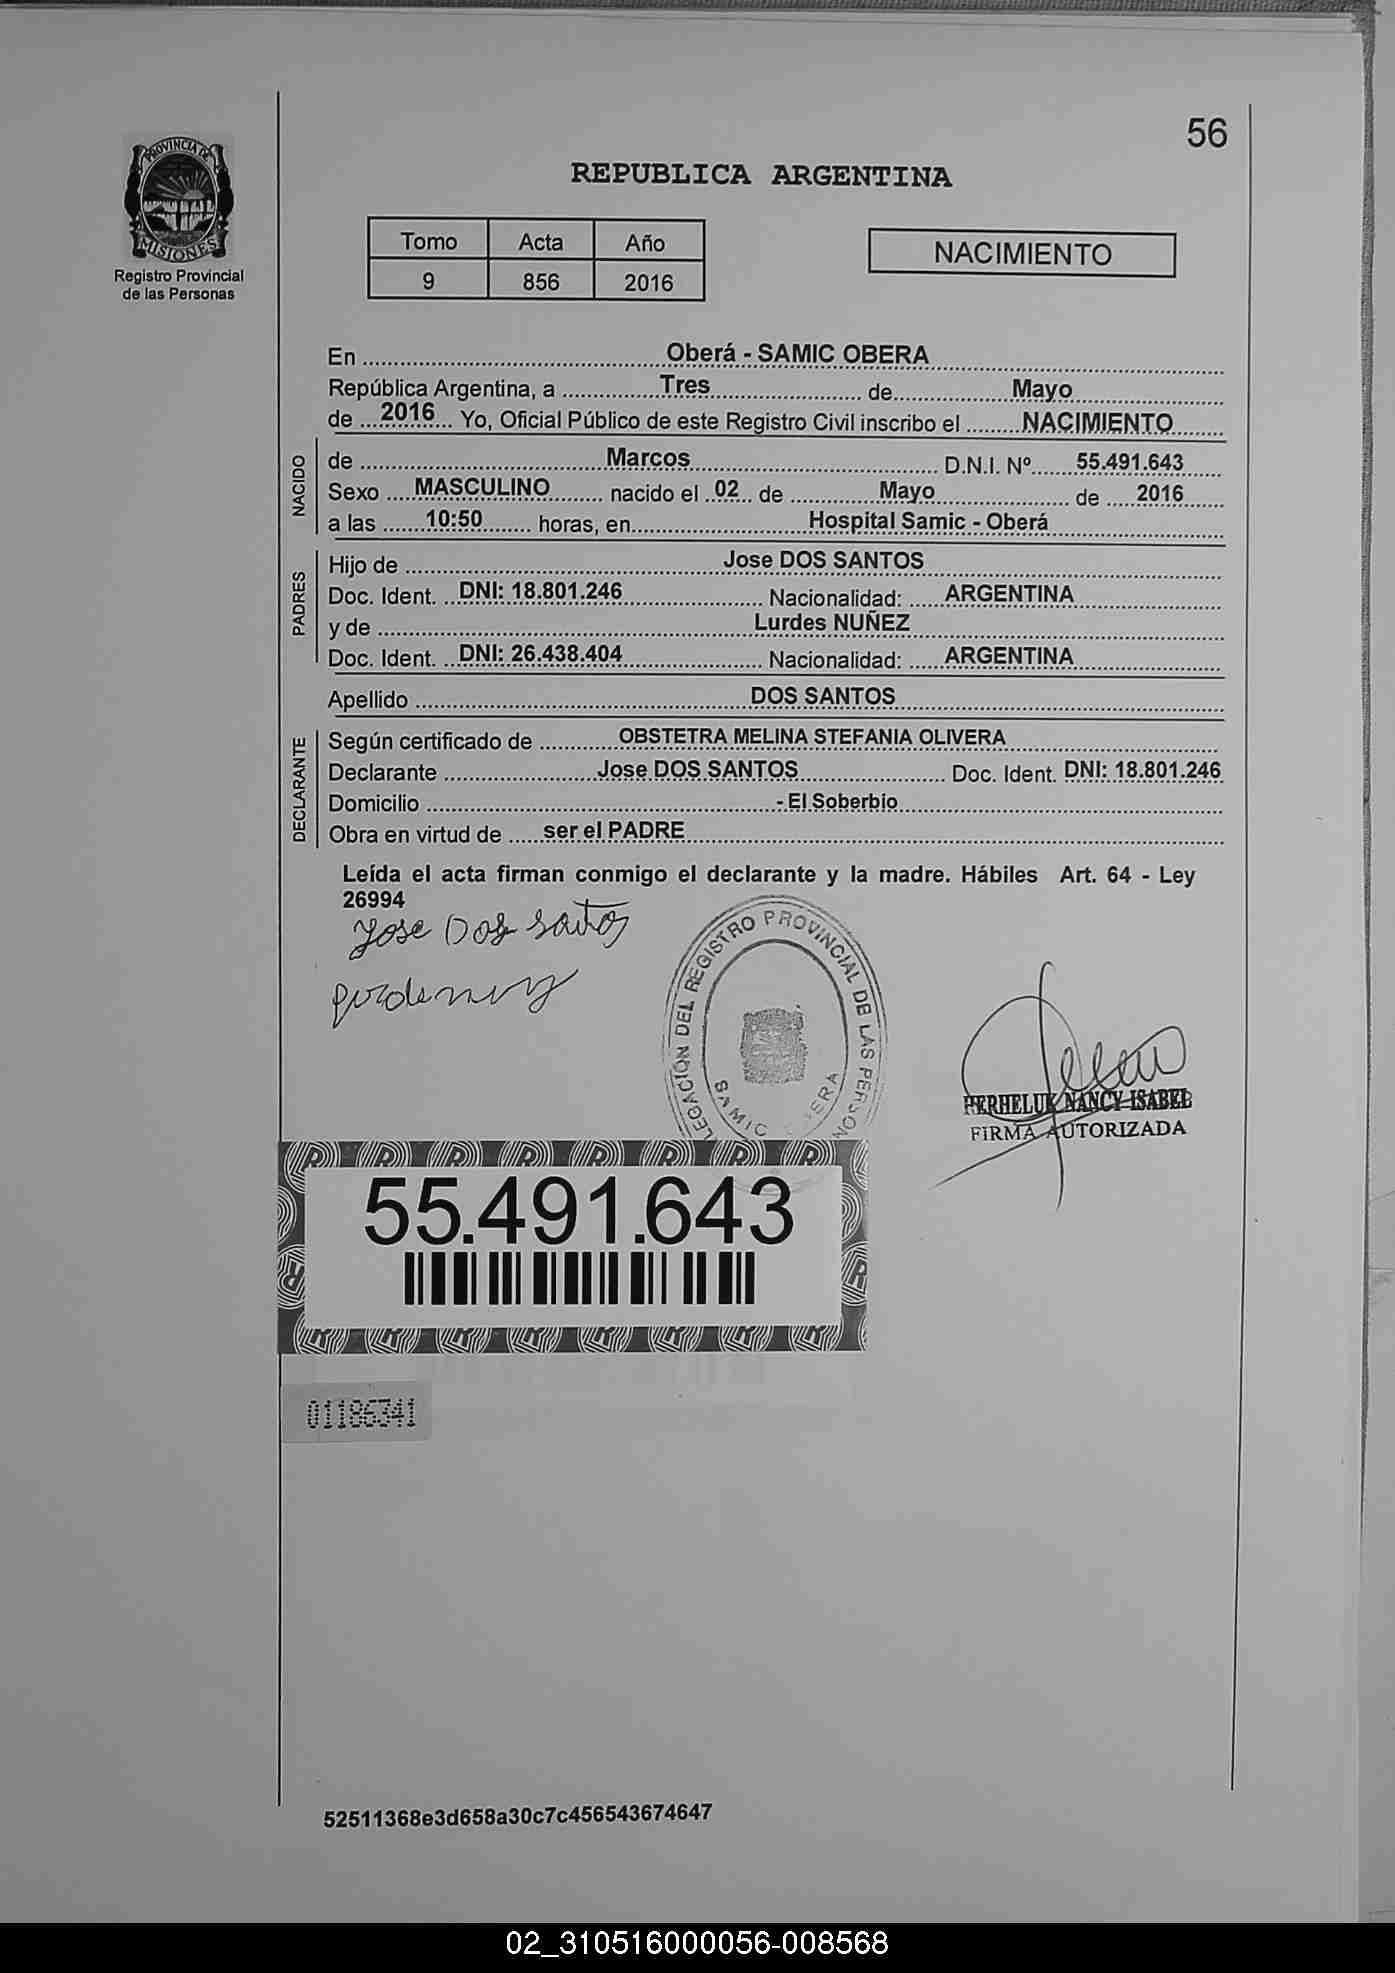 56
PROVINCIA DE
MISIONES
Registro Provincial
de las Personas
REPUBLICA ARGENTINA
Tomo Acta Año
9 856 2016
NACIMIENTO
En ........ Oberá - SAMIC OBERA ........
República Argentina, a ........ Tres ........ de ........ Mayo ........
de .... 2016 .... Yo, Oficial Público de este Registro Civil inscribo el ........ NACIMIENTO ........
NACIDO
de ........ Marcos ........ D.N.I. Nº ........ 55.491.643 ........
Sexo .... MASCULINO ........ nacido el .. 02 .. de ........ Mayo ........ de ...... 2016 ......
a las ....... 10:50 ....... horas, en ........ Hospital Samic - Oberá ........
PADRES
Hijo de ........ Jose DOS SANTOS ........
Doc. Ident. .. DNI: 18.801.246 ........ Nacionalidad: ...... ARGENTINA ........
y de ........ Lurdes NUÑEZ ........
Doc. Ident. .. DNI: 26.438.404 ........ Nacionalidad: ...... ARGENTINA ........
Apellido ........ DOS SANTOS ........
DECLARANTE
Según certificado de ........ OBSTETRA MELINA STEFANIA OLIVERA ........
Declarante ........ Jose DOS SANTOS ........ Doc. Ident. DNI: 18.801.246
Domicilio ........ - El Soberbio ........
Obra en virtud de ...... ser el PADRE ........
Leída el acta firman conmigo el declarante y la madre. Hábiles Art. 64 - Ley
26994
Jose Dos Santos
LEGACION DEL REGISTRO PROVINCIAL DE LAS PERSON
SAMIC
PERHELUK NANCY ISABEL
FIRMA AUTORIZADA
55.491.643
01186341
52511368e3d658a30c7c456543674647
02_310516000056-008568